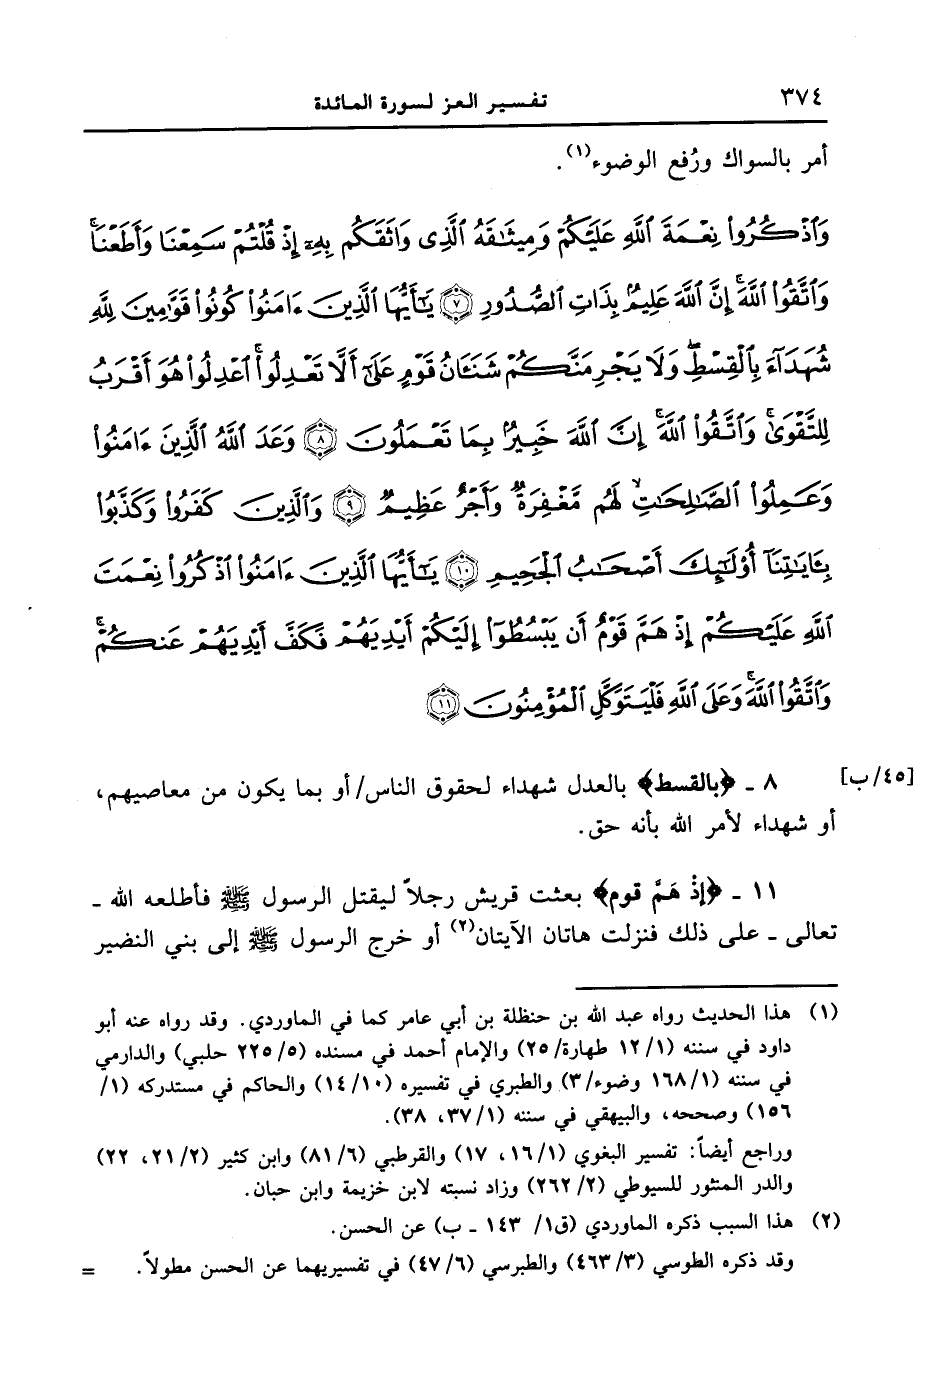 ٣٧٤ تفسير العز لسورة المائدة
أمر بالسواك ورُفع الوضوء(١).
وَٱذۡكُرُواْ نِعۡمَةَ ٱللَّهِ عَلَيۡكُمۡ وَمِيثَٰقَهُ ٱلَّذِى وَاثَقَكُم بِهِۦٓ إِذۡ قُلۡتُمۡ سَمِعۡنَا وَأَطَعۡنَاۖ
وَٱتَّقُواْ ٱللَّهَۚ إِنَّ ٱللَّهَ عَلِيمُۢ بِذَاتِ ٱلصُّدُورِ ﴿٧﴾ يَٰٓأَيُّهَا ٱلَّذِينَ ءَامَنُواْ كُونُواْ قَوَّٰمِينَ لِلَّهِ
شُهَدَآءَ بِٱلۡقِسۡطِۖ وَلَا يَجۡرِمَنَّكُمۡ شَنَـَٔانُ قَوۡمٍ عَلَىٰٓ أَلَّا تَعۡدِلُواْۚ ٱعۡدِلُواْ هُوَ أَقۡرَبُ
لِلتَّقۡوَىٰۖ وَٱتَّقُواْ ٱللَّهَۚ إِنَّ ٱللَّهَ خَبِيرُۢ بِمَا تَعۡمَلُونَ ﴿٨﴾ وَعَدَ ٱللَّهُ ٱلَّذِينَ ءَامَنُواْ
وَعَمِلُواْ ٱلصَّٰلِحَٰتِۙ لَهُم مَّغۡفِرَةٌ وَأَجۡرٌ عَظِيمٌ ﴿٩﴾ وَٱلَّذِينَ كَفَرُواْ وَكَذَّبُواْ
بِـَٔايَٰتِنَآ أُوْلَٰٓئِكَ أَصۡحَٰبُ ٱلۡجَحِيمِ ﴿١٠﴾ يَٰٓأَيُّهَا ٱلَّذِينَ ءَامَنُواْ ٱذۡكُرُواْ نِعۡمَتَ
ٱللَّهِ عَلَيۡكُمۡ إِذۡ هَمَّ قَوۡمٌ أَن يَبۡسُطُوٓاْ إِلَيۡكُمۡ أَيۡدِيَهُمۡ فَكَفَّ أَيۡدِيَهُمۡ عَنكُمۡۖ
وَٱتَّقُواْ ٱللَّهَۚ وَعَلَى ٱللَّهِ فَلۡيَتَوَكَّلِ ٱلۡمُؤۡمِنُونَ ﴿١١﴾
[٤٥/ب] ٨ ـ ﴿بالقسط﴾ بالعدل شهداء لحقوق الناس/ أو بما يكون من معاصيهم،
أو شهداء لأمر الله بأنه حق.
١١ ـ ﴿إذْ هَمَّ قوم﴾ بعثت قريش رجلاً ليقتل الرسول ﷺ فأطلعه الله ـ
تعالى ـ على ذلك فنزلت هاتان الآيتان(٢) أو خرج الرسول ﷺ إلى بني النضير
(١) هذا الحديث رواه عبد الله بن حنظلة بن أبي عامر كما في الماوردي. وقد رواه عنه أبو
داود في سننه (١/١٢ طهارة/٢٥) والإمام أحمد في مسنده (٥/٢٢٥ حلبي) والدارمي
في سننه (١/١٦٨ وضوء/٣) والطبري في تفسيره (١٠/١٤) والحاكم في مستدركه (١/
١٥٦) وصححه، والبيهقي في سننه (١/٣٧، ٣٨).
وراجع أيضاً: تفسير البغوي (١/١٦، ١٧) والقرطبي (٦/٨١) وابن كثير (٢/٢١، ٢٢)
والدر المنثور للسيوطي (٢/٢٦٢) وزاد نسبته لابن خزيمة وابن حبان.
(٢) هذا السبب ذكره الماوردي (ق١/ ١٤٣ ـ ب) عن الحسن.
وقد ذكره الطوسي (٣/٤٦٣) والطبرسي (٦/٤٧) في تفسيريهما عن الحسن مطولاً. =